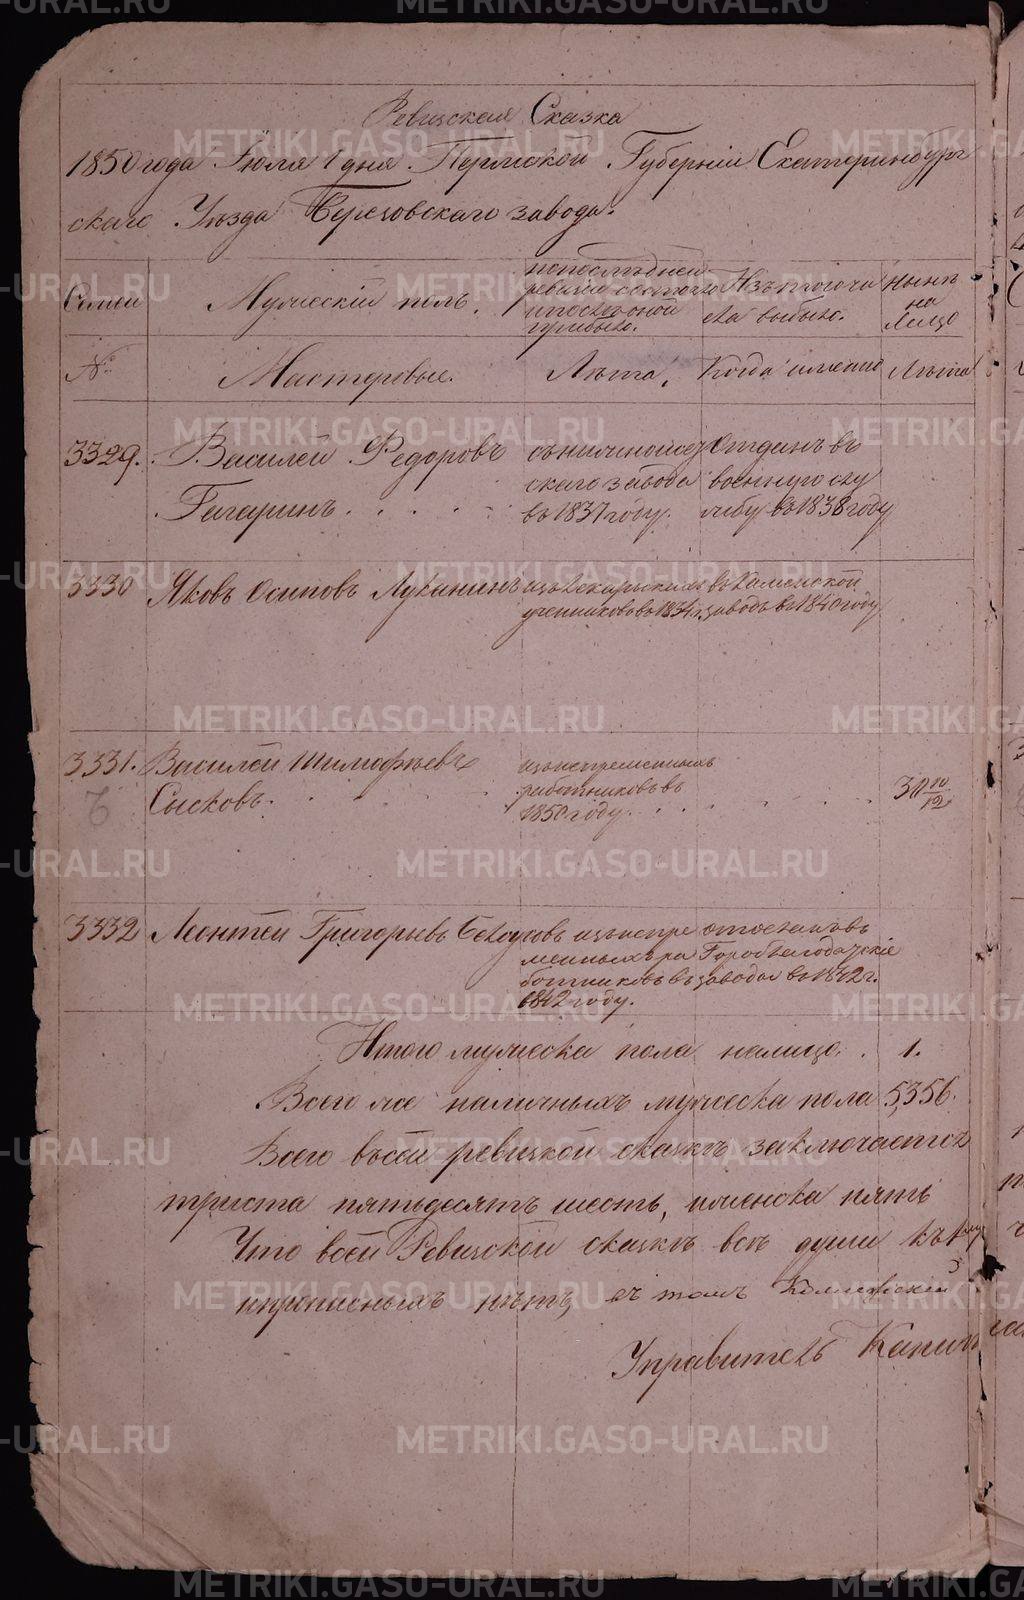 Ревизская Сказка
1850 года Июля 1 дня Пермской Губерніи Екатеринбург
скаго Уѣзда Березовскаго завода.
Семьи
Мужескій полъ.
по последней ревизіи состояло и после оной прибыло.
Изъ того числа выбыло.
Нынѣ на лицо
№
Мастеровые.
Лѣта.
Когда именно
Лѣта
3329. Василей Федоровъ
Гагаринъ
скаго завода
въ 1837 году.
Отданъ въ
военную слу
жбу въ 1838 году
3330 Яковъ Осиповъ Луканинъ
изъ лекарскихъ
учениковъ въ 1834 г.
въ Каменской
заводъ въ 1840 году
3331. Василей Тимофѣевъ
Сысковъ.
изъ непременныхъ
работниковъ въ
1850 году
10/12
3332 Леонтей Григорьевъ Белоусовъ
изъ непре
менныхъ ра
ботниковъ въ
1842 году.
заводы въ 1842 г.
Итого мужеска пола на лицо. 1.
Всего же наличныхъ мужеска пола 5,356.
Всего въ сей ревизкой сказкѣ заключается
триста пятьдесятъ шесть, женска пять
Что в сей Ревизской сказкѣ все души къ
прописныхъ нѣтъ, въ томъ
Управитель Капит
METRIKI.GASO-URAL.RU